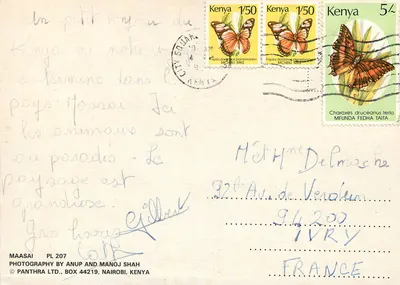 Un p'tit bonjour du
Kenya où notre
termine dans le
pays Maasai. Ici
les animaux sont
au paradis. Le
paysage est
grandiose.
Gros bisous
Gilbert
MAASAI PL 207
PHOTOGRAPHY BY ANUP AND MANOJ SHAH
© PANTHRA LTD., BOX 44219, NAIROBI, KENYA
CITY SQUARE
KENYA
Kenya 1/50
Kenya 1/50
Kenya 5/-
Charaxes druceanus teita
MFUNDA FEDHA TAITA
M et Mme Delmoche
92bis Av. de Verdun
94200
IVRY
FRANCE